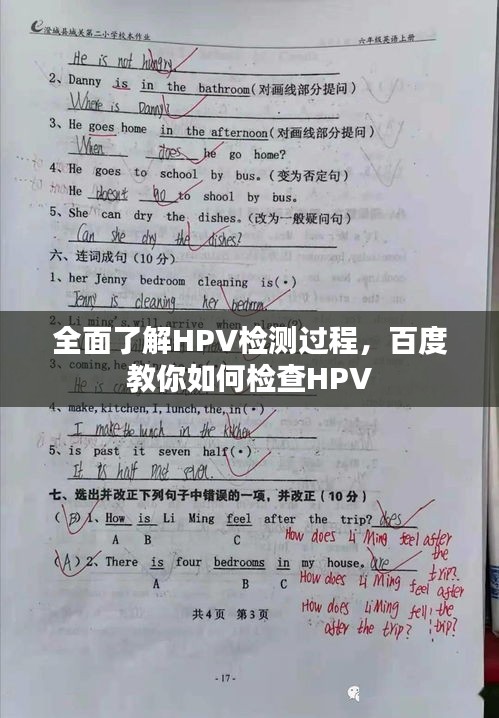 澄城县城关第二小学校本作业 六年级英语上册
He is not hungry
2、Danny is in the bathroom(对画线部分提问)
Where is Danny?
3、He goes home in the afternoon(对画线部分提问)
When does he go home?
4、He goes to school by bus.(变为否定句)
He doesn't go to shool by bus.
5、She can dry the dishes.(改为一般疑问句)
Can she dry the dishes?
六、连词成句(10分)
1、her Jenny bedroom cleaning is(·)
Jenny is cleaning her bedroom.
2、Li ming's will arrive when
全面了解HPV检测过程，百度
教你如何检查HPV
3、coming,he
4、make,kitchen,I,lunch,the,in(·)
I make the lunch in the kitchen
5、is past it seven half(·)
It is half past seven.
七、选出并改正下列句子中错误的一项,并改正(10分)
(B)1、How is Li Ming feel after the trip? does
A B C
How does Li Ming feel after the trip?
(A)2、There is four bedrooms in my house. are
A B C
How does Li Ming feel after the trip?
How does Li Ming fell after the trip?
共4页 第3页
-17-